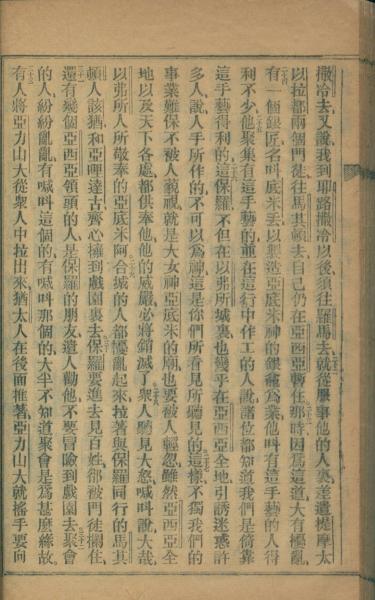 撒冷去、又說、我到耶路撒冷以後、須往羅馬去、就從服事他的人裏、差遣提摩太
以拉都兩個門徒、往馬其頓去、自己仍在亞西亞暫住、那時因爲這道、大有擾亂、
有一個銀匠、名叫底米丟、以製造亞底米神的銀龕爲業、他叫有這手藝的人得
利不少、他聚集有這手藝的、並在這行中作工的人、說、諸位都知道我們是倚靠
這手藝得利的、這保羅不但在以弗所城裏、也幾乎在亞西亞全地、引誘迷惑許
多人、說、人手所作的、不可以爲神、這是你們所看見所聽見的、這樣、不獨我們的
事業難保不被人藐視、就是大女神亞底米的廟、也要被人輕忽、雖然亞西亞全
地、以及天下各處、都供奉他、他的威嚴必將銷滅了、衆人聽見大怒、喊叫說、大哉
以弗所人所敬奉的亞底米阿、合城的人都擾亂起來、拉著與保羅同行的馬其
頓人該猶、和亞哩達古、齊心擁到戲園裏去、保羅要進去見百姓、卻被門徒攔住、
還有幾個亞西亞領頭的人、是保羅的朋友、遣人勸他不要冒險到戲園去、聚會
的人紛紛亂亂、有喊叫這個的、有喊叫那個的、大半不知道聚會是爲甚麼緣故、
有人將亞力山大從衆人中拉出來、猶太人在後面推著、亞力山大就搖手、要向